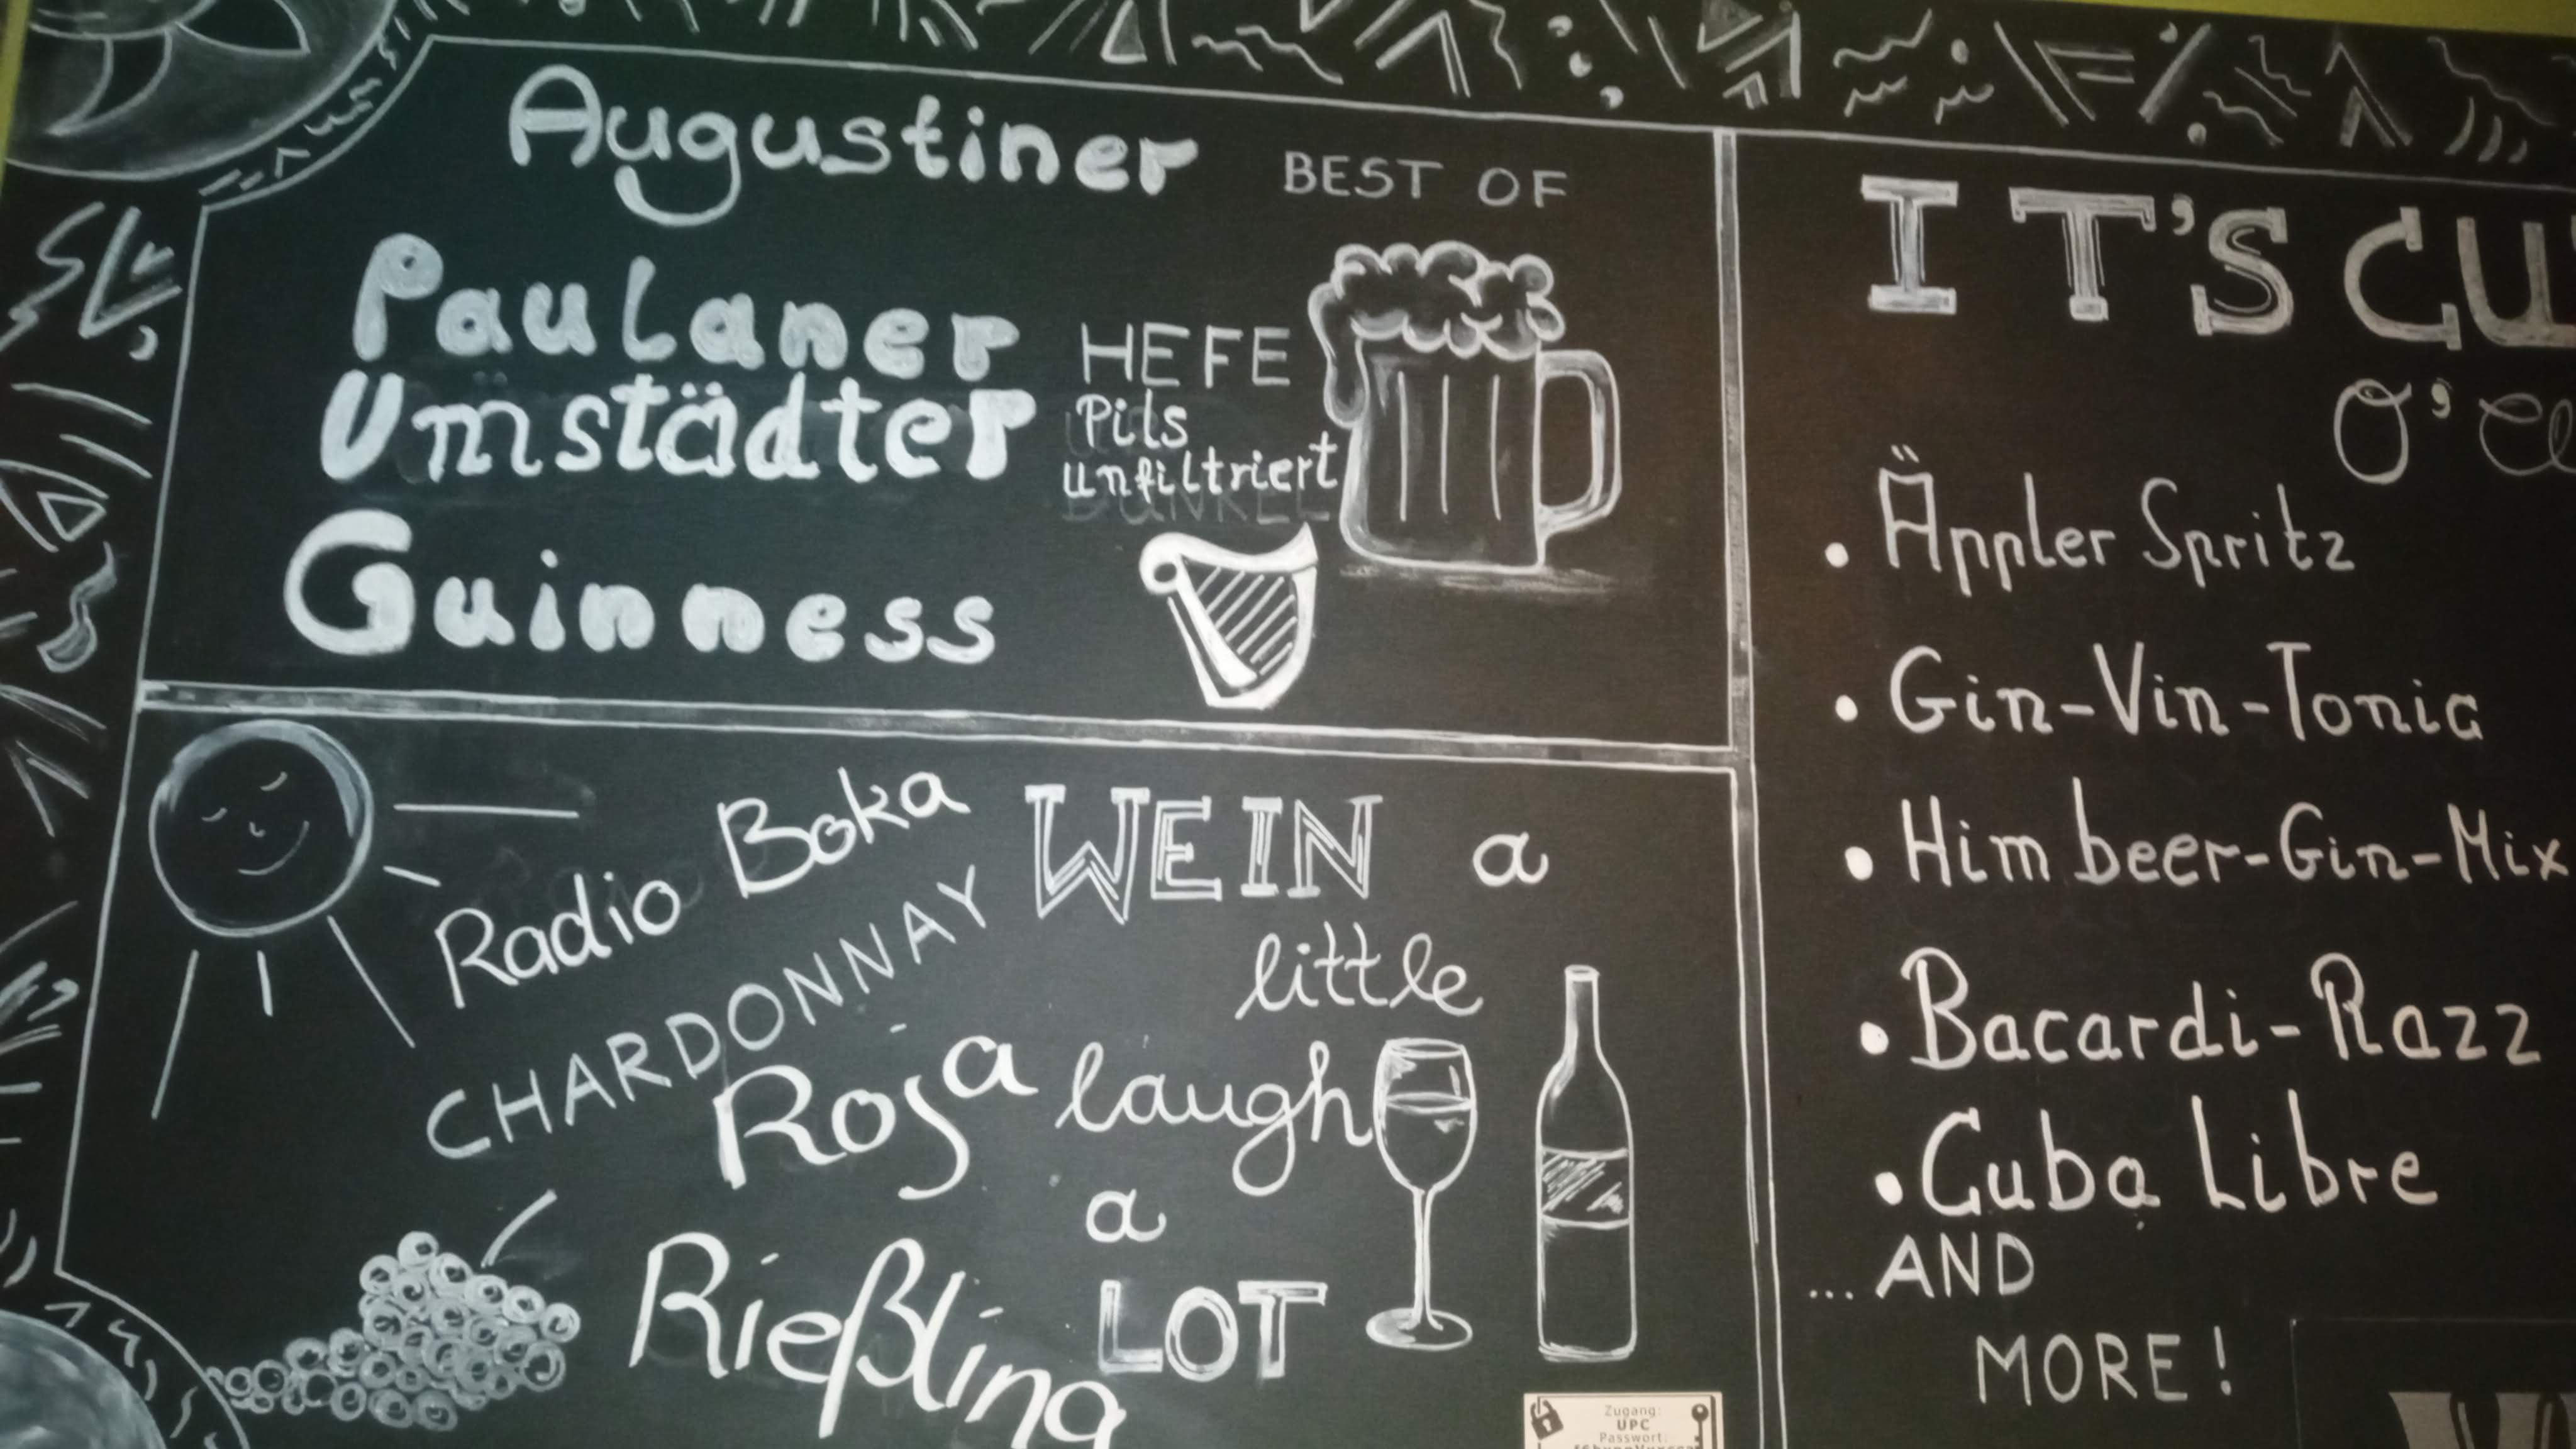 Augustiner
BEST OF
Paulaner HEFE
Umstädter Pils
unfiltriert
Guinness
Radio Boka
CHARDONNAY
Roja
Rießling
WEIN a
little
laugh
a
LOT
IT'S CU
O'Cl
Äppler Spritz
Gin-Vin-Tonic
Himbeer-Gin-Mix
Bacardi-Razz
Cuba Libre
... AND
MORE!
Zugang:
UPC
Passwort: